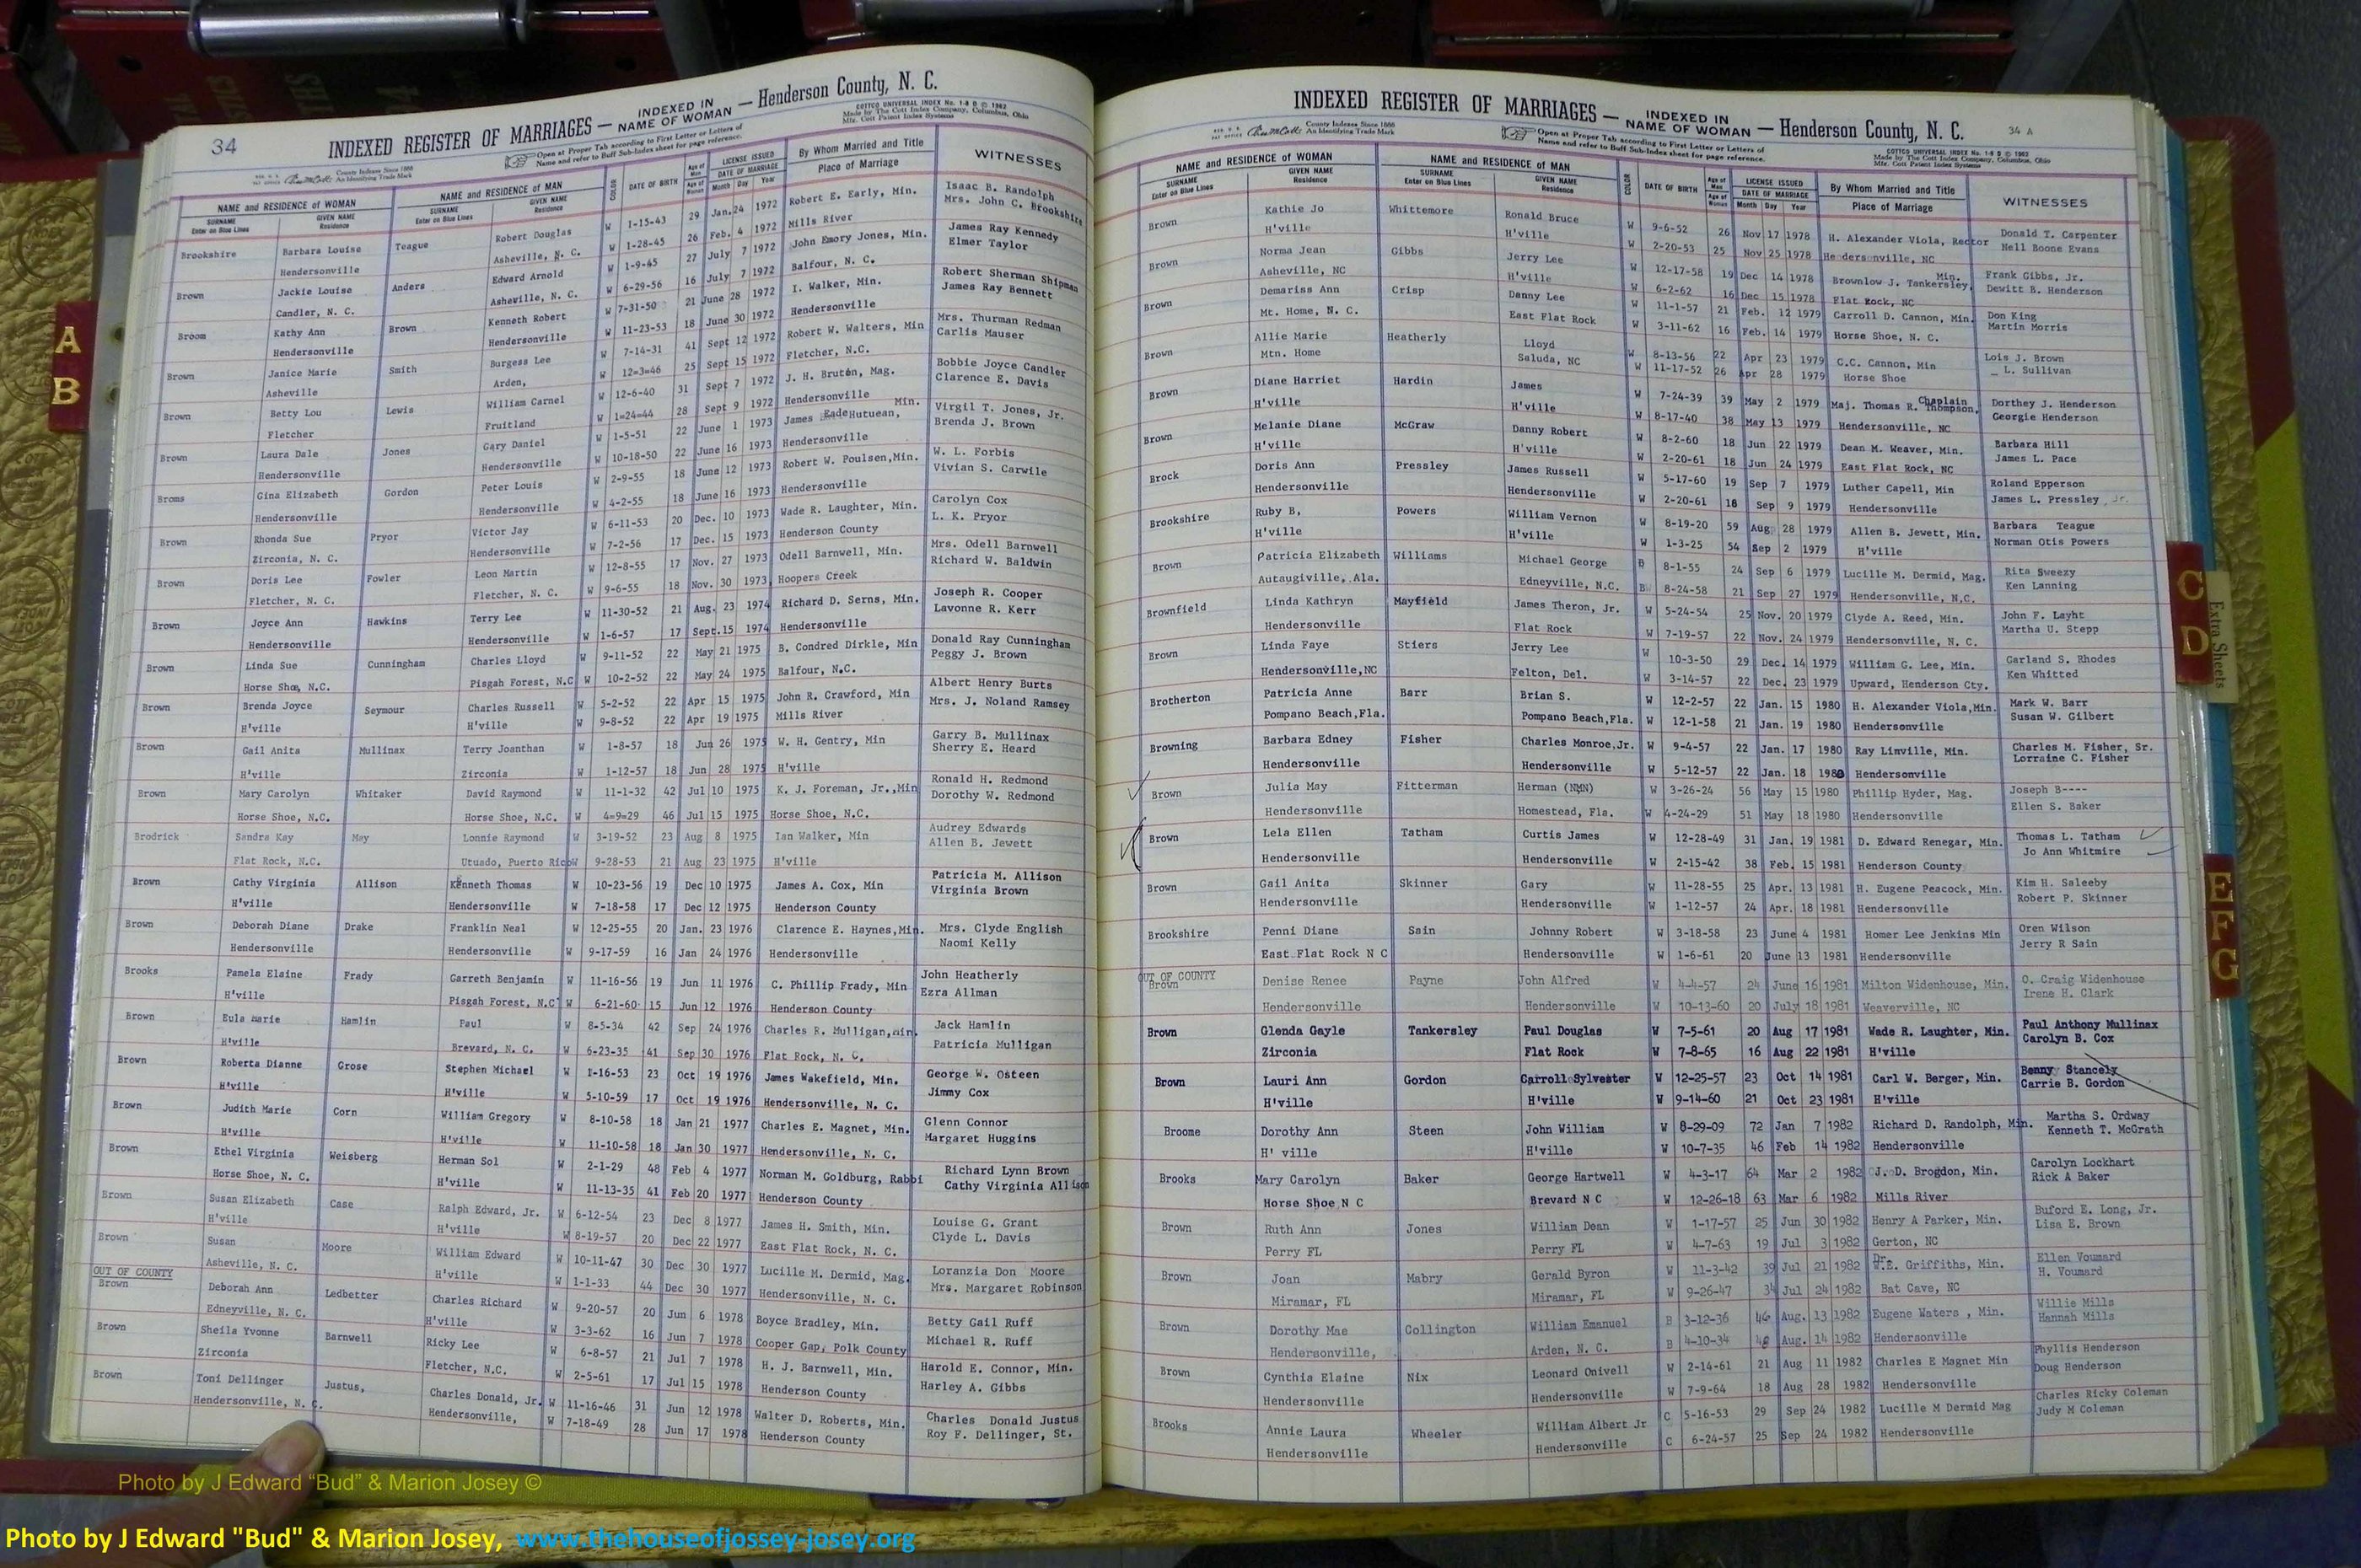 34
INDEXED REGISTER OF MARRIAGES — INDEXED IN NAME OF WOMAN — Henderson County, N. C.
County Indexes Since 1888 An Identifying Trade Mark
Open at Proper Tab according to First Letter or Letters of Name and refer to Buff Sub-Index sheet for page reference.
COTTCO UNIVERSAL INDEX No. 1-8 D © 1962
Made by The Cott Index Company, Columbus, Ohio
Mfr. Cott Patent Index Systems
NAME and RESIDENCE OF WOMAN NAME and RESIDENCE OF MAN COLOR DATE OF BIRTH Age of Man LICENSE ISSUED By Whom Married and Title WITNESSES
SURNAME Enter on Blue Lines GIVEN NAME Residence SURNAME Enter on Blue Lines GIVEN NAME Residence Age of Woman DATE OF MARRIAGE Month Day Year Place of Marriage
Brookshire Barbara Louise Teague Robert Douglas W 1-15-43 29 Jan.24 1972 Robert E. Early, Min. Isaac B. Randolph
Hendersonville Asheville, N. C. W 1-28-45 26 Feb. 4 1972 Mills River Mrs. John C. Brookshire
Brown Jackie Louise Anders Edward Arnold W 1-9-45 27 July 7 1972 John Emory Jones, Min. James Ray Kennedy
Candler, N. C. Asheville, N. C. W 6-29-56 16 July 7 1972 Balfour, N. C. Elmer Taylor
Broom Kathy Ann Brown Kenneth Robert W 7-31-50 21 June 28 1972 I. Walker, Min. Robert Sherman Shipman
Hendersonville Hendersonville W 11-23-53 18 June 30 1972 Hendersonville James Ray Bennett
Brown Janice Marie Smith Burgess Lee W 7-14-31 41 Sept 12 1972 Robert W. Walters, Min Mrs. Thurman Redman
Asheville Arden, W 12=3=46 25 Sept 15 1972 Fletcher, N.C. Carlis Mauser
Brown Betty Lou Lewis William Carnel W 12-6-40 31 Sept 7 1972 J. H. Bruton, Mag. Bobbie Joyce Candler
Fletcher Fruitland W 1=24=44 28 Sept 9 1972 Hendersonville Clarence E. Davis
Brown Laura Dale Jones Gary Daniel W 1-5-51 22 June 1 1973 James Eade Hutuean, Min. Virgil T. Jones, Jr.
Hendersonville Hendersonville W 10-18-50 22 June 16 1973 Hendersonville Brenda J. Brown
Broms Gina Elizabeth Gordon Peter Louis W 2-9-55 18 June 12 1973 Robert W. Poulsen,Min. W. L. Forbis
Hendersonville Hendersonville W 4-2-55 18 June 16 1973 Hendersonville Vivian S. Carwile
Brown Rhonda Sue Pryor Victor Jay W 6-11-53 20 Dec. 10 1973 Wade R. Laughter, Min. Carolyn Cox
Zirconia, N. C. Hendersonville W 7-2-56 17 Dec. 15 1973 Henderson County L. K. Pryor
Brown Doris Lee Fowler Leon Martin W 12-8-55 17 Nov. 27 1973 Odell Barnwell, Min. Mrs. Odell Barnwell
Fletcher, N. C. Fletcher, N. C. W 9-6-55 18 Nov. 30 1973 Hoopers Creek Richard W. Baldwin
Brown Joyce Ann Hawkins Terry Lee W 11-30-52 21 Aug. 23 1974 Richard D. Serns, Min. Joseph R. Cooper
Hendersonville Hendersonville W 1-6-57 17 Sept.15 1974 Hendersonville Lavonne R. Kerr
Brown Linda Sue Cunningham Charles Lloyd W 9-11-52 22 May 21 1975 B. Condred Dirkle, Min Donald Ray Cunningham
Horse Shoe, N.C. Pisgah Forest, N.C W 10-2-52 22 May 24 1975 Balfour, N.C. Peggy J. Brown
Brown Brenda Joyce Seymour Charles Russell W 5-2-52 22 Apr 15 1975 John R. Crawford, Min Albert Henry Burts
H'ville H'ville W 9-8-52 22 Apr 19 1975 Mills River Mrs. J. Noland Ramsey
Brown Gail Anita Mullinax Terry Joanthan W 1-8-57 18 Jun 26 1975 W. H. Gentry, Min Garry B. Mullinax
H'ville Zirconia W 1-12-57 18 Jun 28 1975 H'ville Sherry E. Heard
Brown Mary Carolyn Whitaker David Raymond W 11-1-32 42 Jul 10 1975 K. J. Foreman, Jr.,Min Ronald H. Redmond
Horse Shoe, N.C. Horse Shoe, N.C. W 4=9=29 46 Jul 15 1975 Horse Shoe, N.C. Dorothy W. Redmond
Brodrick Sandra Kay May Lonnie Raymond W 3-19-52 23 Aug 8 1975 Ian Walker, Min Audrey Edwards
Flat Rock, N.C. Utuado, Puerto Rico W 9-28-53 21 Aug 23 1975 H'ville Allen B. Jewett
Brown Cathy Virginia Allison Kenneth Thomas W 10-23-56 19 Dec 10 1975 James A. Cox, Min Patricia M. Allison
H'ville Hendersonville W 7-18-58 17 Dec 12 1975 Henderson County Virginia Brown
Brown Deborah Diane Drake Franklin Neal W 12-25-55 20 Jan. 23 1976 Clarence E. Haynes,Min. Mrs. Clyde English
Hendersonville Hendersonville W 9-17-59 16 Jan 24 1976 Hendersonville Naomi Kelly
Brooks Pamela Elaine Frady Garreth Benjamin W 11-16-56 19 Jun 11 1976 C. Phillip Frady, Min John Heatherly
H'ville Pisgah Forest, N.C W 6-21-60 15 Jun 12 1976 Henderson County Ezra Allman
Brown Eula Marie Hamlin Paul W 8-5-34 42 Sep 24 1976 Charles R. Mulligan,Min. Jack Hamlin
H'ville Brevard, N. C. W 6-23-35 41 Sep 30 1976 Flat Rock, N. C. Patricia Mulligan
Brown Roberta Dianne Grose Stephen Michael W 1-16-53 23 Oct 19 1976 James Wakefield, Min. George W. Osteen
H'ville H'ville W 5-10-59 17 Oct 19 1976 Hendersonville, N. C. Jimmy Cox
Brown Judith Marie Corn William Gregory W 8-10-58 18 Jan 21 1977 Charles E. Magnet, Min. Glenn Connor
H'ville H'ville W 11-10-58 18 Jan 30 1977 Hendersonville, N. C. Margaret Huggins
Brown Ethel Virginia Weisberg Herman Sol W 2-1-29 48 Feb 4 1977 Norman M. Goldburg, Rabbi Richard Lynn Brown
Horse Shoe, N. C. H'ville W 11-13-35 41 Feb 20 1977 Henderson County Cathy Virginia Allison
Brown Susan Elizabeth Case Ralph Edward, Jr. W 6-12-54 23 Dec 8 1977 James H. Smith, Min. Louise G. Grant
H'ville H'ville W 8-19-57 20 Dec 22 1977 East Flat Rock, N. C. Clyde L. Davis
Brown Susan Moore William Edward W 10-11-47 30 Dec 30 1977 Lucille M. Dermid, Mag. Loranzia Don Moore
Asheville, N. C. H'ville W 1-1-33 44 Dec 30 1977 Hendersonville, N. C. Mrs. Margaret Robinson
OUT OF COUNTY
Brown Deborah Ann Ledbetter Charles Richard W 9-20-57 20 Jun 6 1978 Boyce Bradley, Min. Betty Gail Ruff
Edneyville, N. C. H'ville W 3-3-62 16 Jun 7 1978 Cooper Gap, Polk County Michael R. Ruff
Brown Sheila Yvonne Barnwell Ricky Lee W 6-8-57 21 Jul 7 1978 H. J. Barnwell, Min. Harold E. Connor, Min.
Zirconia Fletcher, N.C. W 2-5-61 17 Jul 15 1978 Henderson County Harley A. Gibbs
Brown Toni Dellinger Justus, Charles Donald, Jr. W 11-16-46 31 Jun 12 1978 Walter D. Roberts, Min. Charles Donald Justus
Hendersonville, N. C. Hendersonville, W 7-18-49 28 Jun 17 1978 Henderson County Roy F. Dellinger, St.
INDEXED REGISTER OF MARRIAGES — INDEXED IN NAME OF WOMAN — Henderson County, N. C.
34 A
County Indexes Since 1888 An Identifying Trade Mark
Open at Proper Tab according to First Letter or Letters of Name and refer to Buff Sub-Index sheet for page reference.
COTTCO UNIVERSAL INDEX No. 1-8 D © 1962
Made by The Cott Index Company, Columbus, Ohio
Mfr. Cott Patent Index Systems
NAME and RESIDENCE OF WOMAN NAME and RESIDENCE OF MAN COLOR DATE OF BIRTH Age of Man LICENSE ISSUED By Whom Married and Title WITNESSES
SURNAME Enter on Blue Lines GIVEN NAME Residence SURNAME Enter on Blue Lines GIVEN NAME Residence Age of Woman DATE OF MARRIAGE Month Day Year Place of Marriage
Brown Kathie Jo Whittemore Ronald Bruce W 9-6-52 26 Nov 17 1978 H. Alexander Viola, Rector Donald T. Carpenter
H'ville H'ville W 2-20-53 25 Nov 25 1978 Hendersonville, NC Nell Boone Evans
Brown Norma Jean Gibbs Jerry Lee W 12-17-58 19 Dec 14 1978 Brownlow J. Tankersley, Min. Frank Gibbs, Jr.
Asheville, NC H'ville W 6-2-62 16 Dec 15 1978 Flat Rock, NC Dewitt B. Henderson
Brown Demariss Ann Crisp Danny Lee W 11-1-57 21 Feb. 12 1979 Carroll D. Cannon, Min. Don King
Mt. Home, N. C. East Flat Rock W 3-11-62 16 Feb. 14 1979 Horse Shoe, N. C. Martin Morris
Brown Allie Marie Heatherly Lloyd W 8-13-56 22 Apr 23 1979 C.C. Cannon, Min Lois J. Brown
Mtn. Home Saluda, NC W 11-17-52 26 Apr 28 1979 Horse Shoe _ L. Sullivan
Brown Diane Harriet Hardin James W 7-24-39 39 May 2 1979 Maj. Thomas R. Thompson, Chaplain Dorthey J. Henderson
H'ville H'ville W 8-17-40 38 May 13 1979 Hendersonville, NC Georgie Henderson
Brown Melanie Diane McGraw Danny Robert W 8-2-60 18 Jun 22 1979 Dean M. Weaver, Min. Barbara Hill
H'ville H'ville W 2-20-61 18 Jun 24 1979 East Flat Rock, NC James L. Pace
Brock Doris Ann Pressley James Russell W 5-17-60 19 Sep 7 1979 Luther Capell, Min Roland Epperson
Hendersonville Hendersonville W 2-20-61 18 Sep 9 1979 Hendersonville James L. Pressley, Jr.
Brookshire Ruby B, Powers William Vernon W 8-19-20 59 Aug 28 1979 Allen B. Jewett, Min. Barbara Teague
H'ville H'ville W 1-3-25 54 Sep 2 1979 H'ville Norman Otis Powers
Brown Patricia Elizabeth Williams Michael George B 8-1-55 24 Sep 6 1979 Lucille M. Dermid, Mag. Rita Sweezy
Autaugiville, Ala. Edneyville, N.C. B 8-24-58 21 Sep 27 1979 Hendersonville, N.C. Ken Lanning
Brownfield Linda Kathryn Mayfield James Theron, Jr. W 5-24-54 25 Nov. 20 1979 Clyde A. Reed, Min. John F. Layht
Hendersonville Flat Rock W 7-19-57 22 Nov. 24 1979 Hendersonville, N. C. Martha U. Stepp
Brown Linda Faye Stiers Jerry Lee W 10-3-50 29 Dec. 14 1979 William G. Lee, Min. Garland S. Rhodes
Hendersonville,NC Felton, Del. W 3-14-57 22 Dec. 23 1979 Upward, Henderson Cty. Ken Whitted
Brotherton Patricia Anne Barr Brian S. W 12-2-57 22 Jan. 15 1980 H. Alexander Viola,Min. Mark W. Barr
Pompano Beach,Fla. Pompano Beach,Fla. W 12-1-58 21 Jan. 19 1980 Hendersonville Susan W. Gilbert
Browning Barbara Edney Fisher Charles Monroe,Jr. W 9-4-57 22 Jan. 17 1980 Ray Linville, Min. Charles M. Fisher, Sr.
Hendersonville Hendersonville W 5-12-57 22 Jan. 18 1980 Hendersonville Lorraine C. Fisher
Brown Julia May Fitterman Herman (NMN) W 3-26-24 56 May 15 1980 Phillip Hyder, Mag. Joseph B----
Hendersonville Homestead, Fla. W 4-24-29 51 May 18 1980 Hendersonville Ellen S. Baker
Brown Lela Ellen Tatham Curtis James W 12-28-49 31 Jan. 19 1981 D. Edward Renegar, Min. Thomas L. Tatham
Hendersonville Hendersonville W 2-15-42 38 Feb. 15 1981 Henderson County Jo Ann Whitmire
Brown Gail Anita Skinner Gary W 11-28-55 25 Apr. 13 1981 H. Eugene Peacock, Min. Kim H. Saleeby
Hendersonville Hendersonville W 1-12-57 24 Apr. 18 1981 Hendersonville Robert P. Skinner
Brookshire Penni Diane Sain Johnny Robert W 3-18-58 23 June 4 1981 Homer Lee Jenkins Min Oren Wilson
East Flat Rock N C Hendersonville W 1-6-61 20 June 13 1981 Hendersonville Jerry R Sain
OUT OF COUNTY
Brown Denise Renee Payne John Alfred W 4-4-57 24 June 16 1981 Milton Widenhouse, Min. O. Craig Widenhouse
Hendersonville Hendersonville W 10-13-60 20 July 18 1981 Weaverville, NC Irene H. Clark
Brown Glenda Gayle Tankersley Paul Douglas W 7-5-61 20 Aug 17 1981 Wade R. Laughter, Min. Paul Anthony Mullinax
Zirconia Flat Rock W 7-8-65 16 Aug 22 1981 H'ville Carolyn B. Cox
Brown Lauri Ann Gordon Carroll Sylvester W 12-25-57 23 Oct 14 1981 Carl W. Berger, Min. Benny Stancely
H'ville H'ville W 9-14-60 21 Oct 23 1981 H'ville Carrie B. Gordon
Broome Dorothy Ann Steen John William W 8-29-09 72 Jan 7 1982 Richard D. Randolph, Min. Martha S. Ordway
H' ville H'ville W 10-7-35 46 Feb 14 1982 Hendersonville Kenneth T. McGrath
Brooks Mary Carolyn Baker George Hartwell W 4-3-17 64 Mar 2 1982 J. D. Brogdon, Min. Carolyn Lockhart
Horse Shoe N C Brevard N C W 12-26-18 63 Mar 6 1982 Mills River Rick A Baker
Brown Ruth Ann Jones William Dean W 1-17-57 25 Jun 30 1982 Henry A Parker, Min. Buford E. Long, Jr.
Perry FL Perry FL W 4-7-63 19 Jul 3 1982 Gerton, NC Lisa E. Brown
Brown Joan Mabry Gerald Byron W 11-3-42 39 Jul 21 1982 Dr. W.E. Griffiths, Min. Ellen Voumard
Miramar, FL Miramar, FL W 9-26-47 34 Jul 24 1982 Bat Cave, NC H. Voumard
Brown Dorothy Mae Collington William Emanuel B 3-12-36 46 Aug. 13 1982 Eugene Waters , Min. Willie Mills
Hendersonville, Arden, N. C. B 4-10-34 48 Aug. 14 1982 Hendersonville Hannah Mills
Brown Cynthia Elaine Nix Leonard Onivell W 2-14-61 21 Aug 11 1982 Charles E Magnet Min Phyllis Henderson
Hendersonville Hendersonville W 7-9-64 18 Aug 28 1982 Hendersonville Doug Henderson
Brooks Annie Laura Wheeler William Albert Jr C 5-16-53 29 Sep 24 1982 Lucille M Dermid Mag Charles Ricky Coleman
Hendersonville Hendersonville C 6-24-57 25 Sep 24 1982 Hendersonville Judy M Coleman
A
B
C
D
Extra Sheets
E
F
G
Photo by J Edward “Bud” & Marion Josey ©
Photo by J Edward "Bud" & Marion Josey, www.thehouseofjossey-josey.org